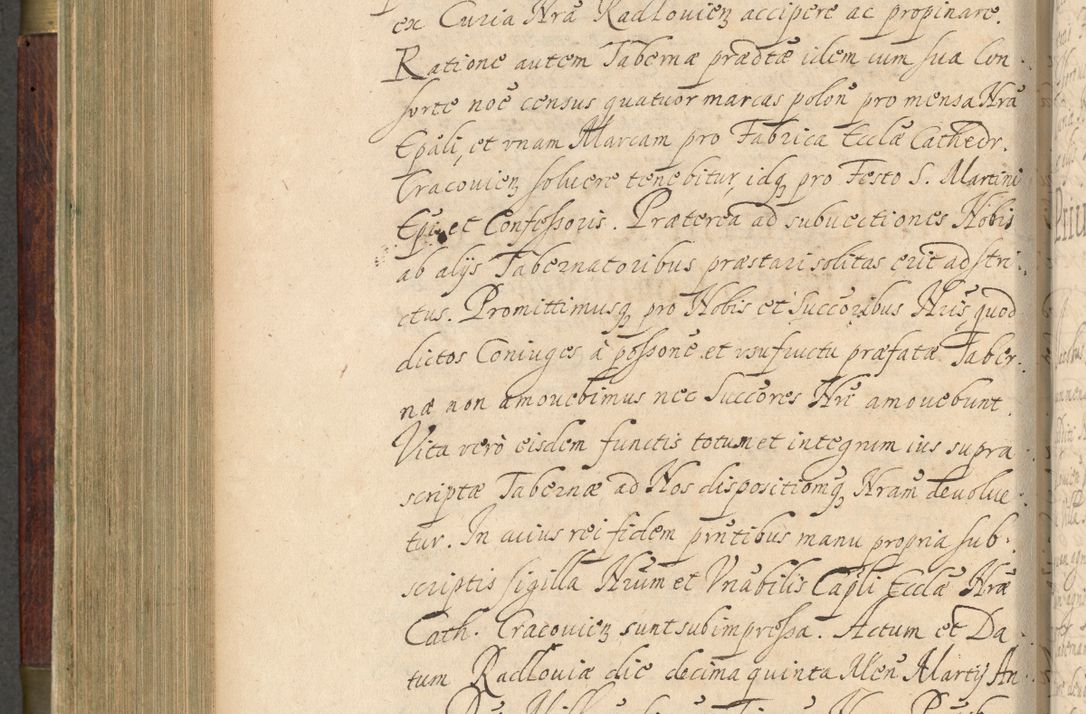 ex Curia Nrã Radlovieñ accipere ac propinare.
Ratione autem Tabernæ prædtæ idem cum sua Con
sorte noe census quatuor marcas polon pro mensa Nrã
Epãli, et vnam Marcam pro Fabrica Ecclæ Cathedr.
Cracovien soluere tenebitur, idq pro Festo S. Martini
Epi et Confessoris. Præterea ad subuectiones Nobis
ab alijs Tabernatoribus præstari solitas erit adstri
ctus. Promittimusq pro Nobis et Succoribus Nris quod
dictos Coniuges à possone et vsufructu præfatæ Taber
næ non amouebimus nec Succores Nri amouebunt.
Vita verò eisdem functis totum et integrum ius supra
scriptæ Tabernæ ad Nos dispositionq Nram deuolue
tur. In cuius rei fidem pntibus manu propria sub
scriptis sigilla Nrum et Vnabilis Capli Ecclæ Nræ
Cath. Cracovien sunt subimpressa. Actum et Da
tum Radloviæ die decima quinta Men Martij An